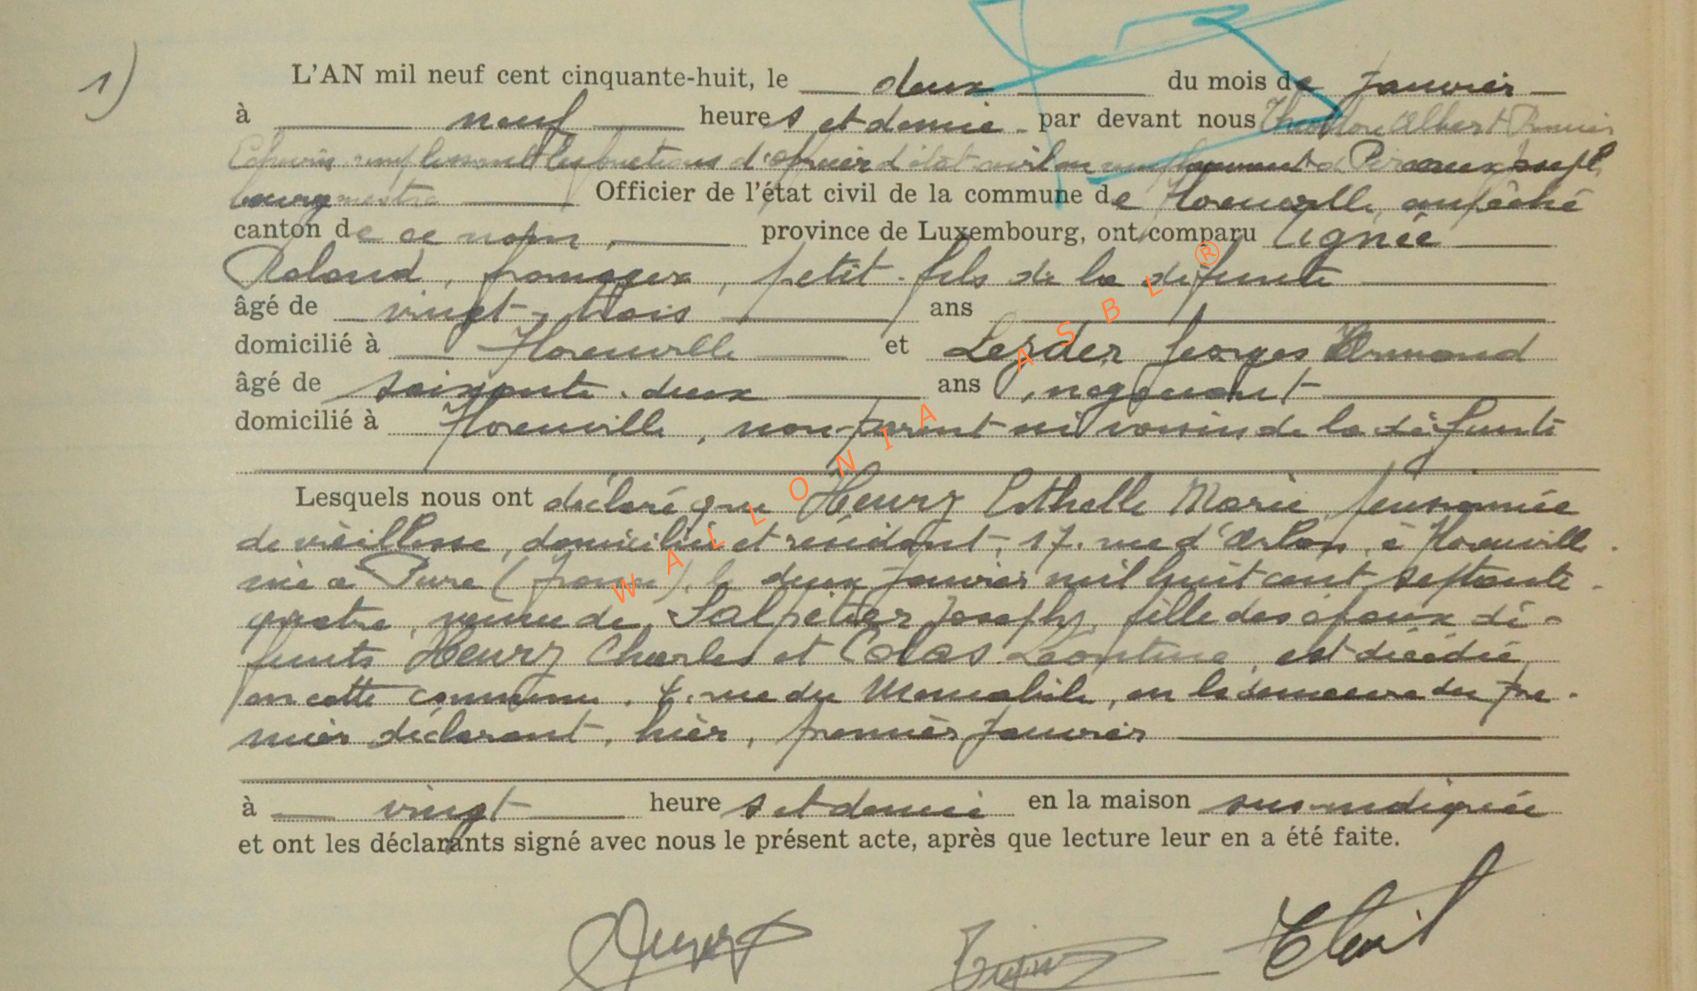 1)
L'AN mil neuf cent cinquante-huit, le deux du mois de Janvier
à neuf heures et demie par devant nous Albert
Echevin remplissant les fonctions d'officier d'état civil en remplacement de Joseph
bourgmestre Officier de l'état civil de la commune de Florenville, empêché
canton de ce nom, province de Luxembourg, ont comparu Lignée
Roland, fromager, petit-fils de la défunte
âgé de vingt-trois ans
domicilié à Florenville et Lezder Georges Armand
âgé de soixante-deux ans, négociant
domicilié à Florenville, non-parent ni voisin de la défunte
Lesquels nous ont déclaré que Henry Esthelle Marie, pensionnée
de vieillesse, domiciliée et résidant, 17, rue d'Arlon, à Florenville
née à Pure (france), le deux janvier mil huit cent septante
quatre, veuve de Salpétier Joseph, fille des époux dé-
funts Henry Charles et Colas Léontine, est décédée
en cette commune, rue du, en la demeure du pre-
mier déclarant, hier, premier janvier
à vingt heures et demie en la maison susindiquée
et ont les déclarants signé avec nous le présent acte, après que lecture leur en a été faite.
WALLONIA ASBL ®